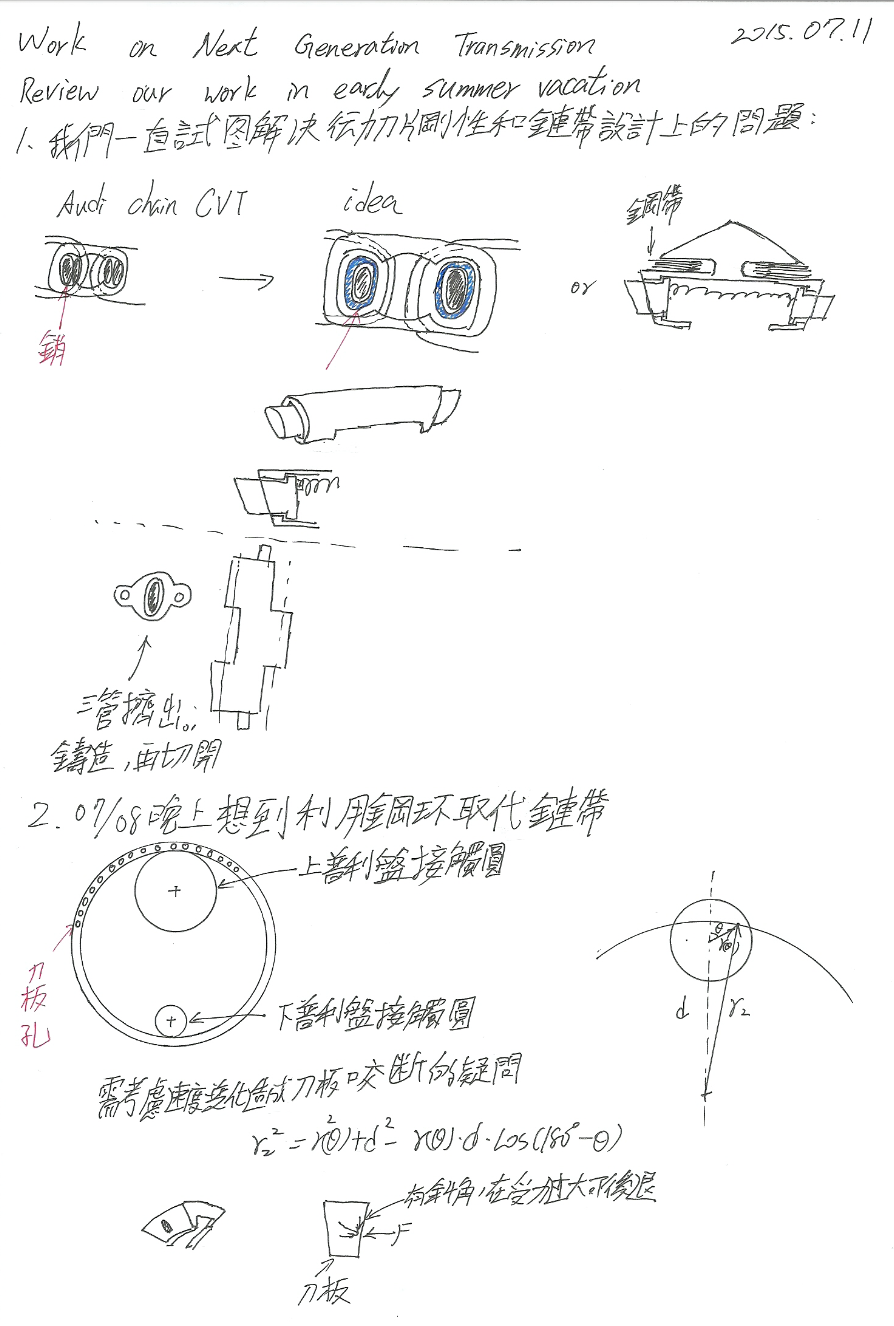 Work on Next Generation Transmission
2015.07.11
Review our work in early summer vacation
1. 我們一直試图解決径向刀片剛性和鏈帶設計上的問題:
Audi chain CVT
idea
鋼帶
or
銷
三管擠出
鑄造,再切開
2. 07/08晚上想到利用鋼环取代鏈帶
上普利盤接觸圓
刀板孔
下普利盤接觸圓
θ
r(θ)
d
r₂
需考慮速度变化造成刀板咬断的疑問
r₂² = r²(θ)+d²- r(θ)·d·cos(180°-θ)
有斜角,在受力过大下後退
F
刀板